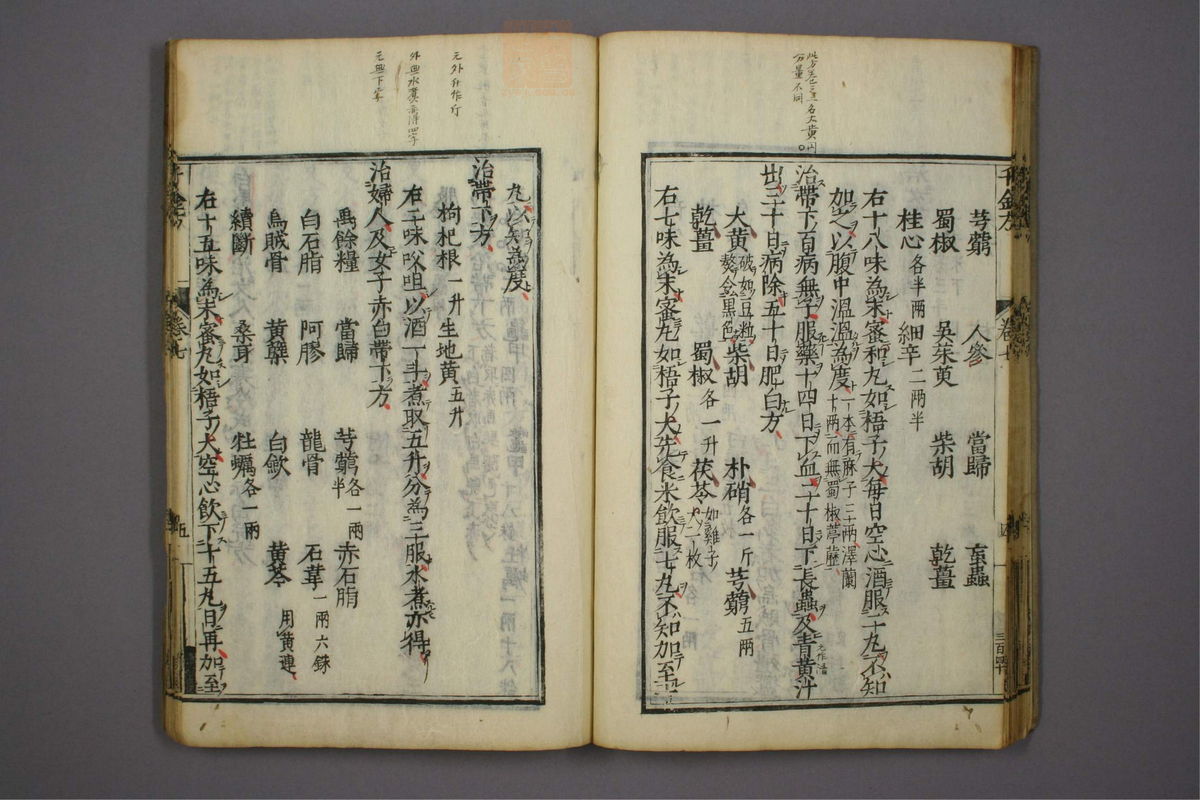 此方芎
分量不同
千金方
卷七
四
三百四十
芎藭 人參 當歸 䖟蟲
蜀椒 吳茱萸 柴胡 乾薑
桂心各半兩 細辛二兩半
右十八味為末蜜和丸如梧子大每日空心酒服二十丸不知
加之以腹中溫溫為度一本有麻子三十兩澤蘭十兩而無蜀椒葶藶
治帶下百病無子服藥十四日下血二十日下長蟲及青黃汁
元作清
出三十日病除五十日肥白方
大黃破如豆粒熬令黑色 柴胡 朴硝各一斤 芎藭五兩
乾薑 蜀椒各一升 茯苓如雞子大一枚
右七味為末蜜丸如梧子大先食米飲服七丸不知加至十
丸以知為度
元外升作斤
治帶下方
枸杞根一升 生地黃五升
外無水煮亦得四字
右二味㕮咀以酒一斗煮取五升分為三服水煮亦得
元無下字
治婦人及女子赤白帶下方
禹餘糧 當歸 芎藭各一兩半 赤石脂
白石脂 阿膠 龍骨 石韋一兩六銖
烏賊骨 黃蘗 白蘞 黃芩用黃連
續斷 桑耳 牡蠣各一兩
右十五味為末蜜丸如梧子大空心飲下十五丸日再加至
千金方
卷七
五